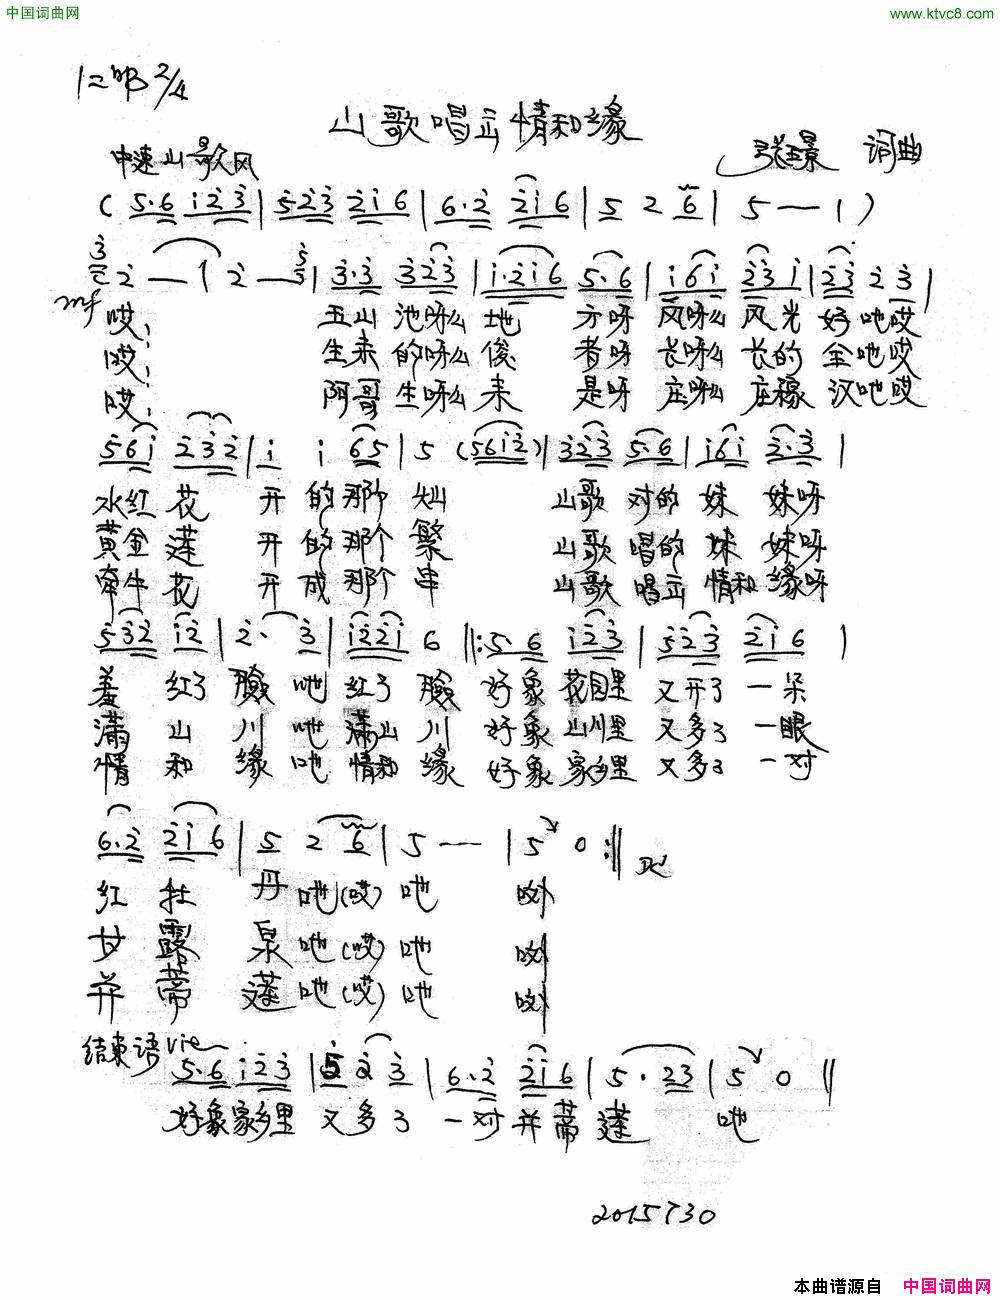 中国词曲网 www.ktvc8.com
1=bB 2/4
山歌唱云情和缘
中速山歌风 词曲
( 5·6 i23 | 523 2i6 | 6·2 2i6 | 5 2 6 | 5 — — | )
2 — | 2 — | 3·3 323 | i·2i6 5·6 | i6i 23i | 23 2 3 |
mf
哎， 玉山池呀么地方呀风呀么风光好吔哎
哎， 生来的呀么俊者呀长呀么长的全吔哎
哎， 阿哥生呀么来是呀庄呀么庄稼汉吔哎
56i 232 | i i 65 | 5 (56i2) | 323 5·6 | i6i 2·3 |
水红花开的那个灿 山歌对的妹妹呀
黄金莲开的那个繁 山歌唱的妹妹呀
牵牛花开成那个串 山歌唱云情和缘呀
532 i2 | 2· 3 | i22i 6 ‖: 5·6 i23 | 523 2i6 |
羞红了脸吔红了脸 好象花园里又开了一朵
满山川吔满山川 好象山川里又多了一眼
情和缘吔情和缘 好象家乡里又多了一对
6·2 2i6 | 5 2 6 | 5 — — | 5 0 :‖ D.C
红牡丹吔(哎)吔 呦
甘露泉吔(哎)吔 呦
并蒂莲吔(哎)吔 呦
结束语
5·6 i23 | 5 2 3 | 6·2 2i6 | 5·23 | 5 0 ‖
好象家乡里又多了一对并蒂莲 吔
2015730
本曲谱源自 中国词曲网